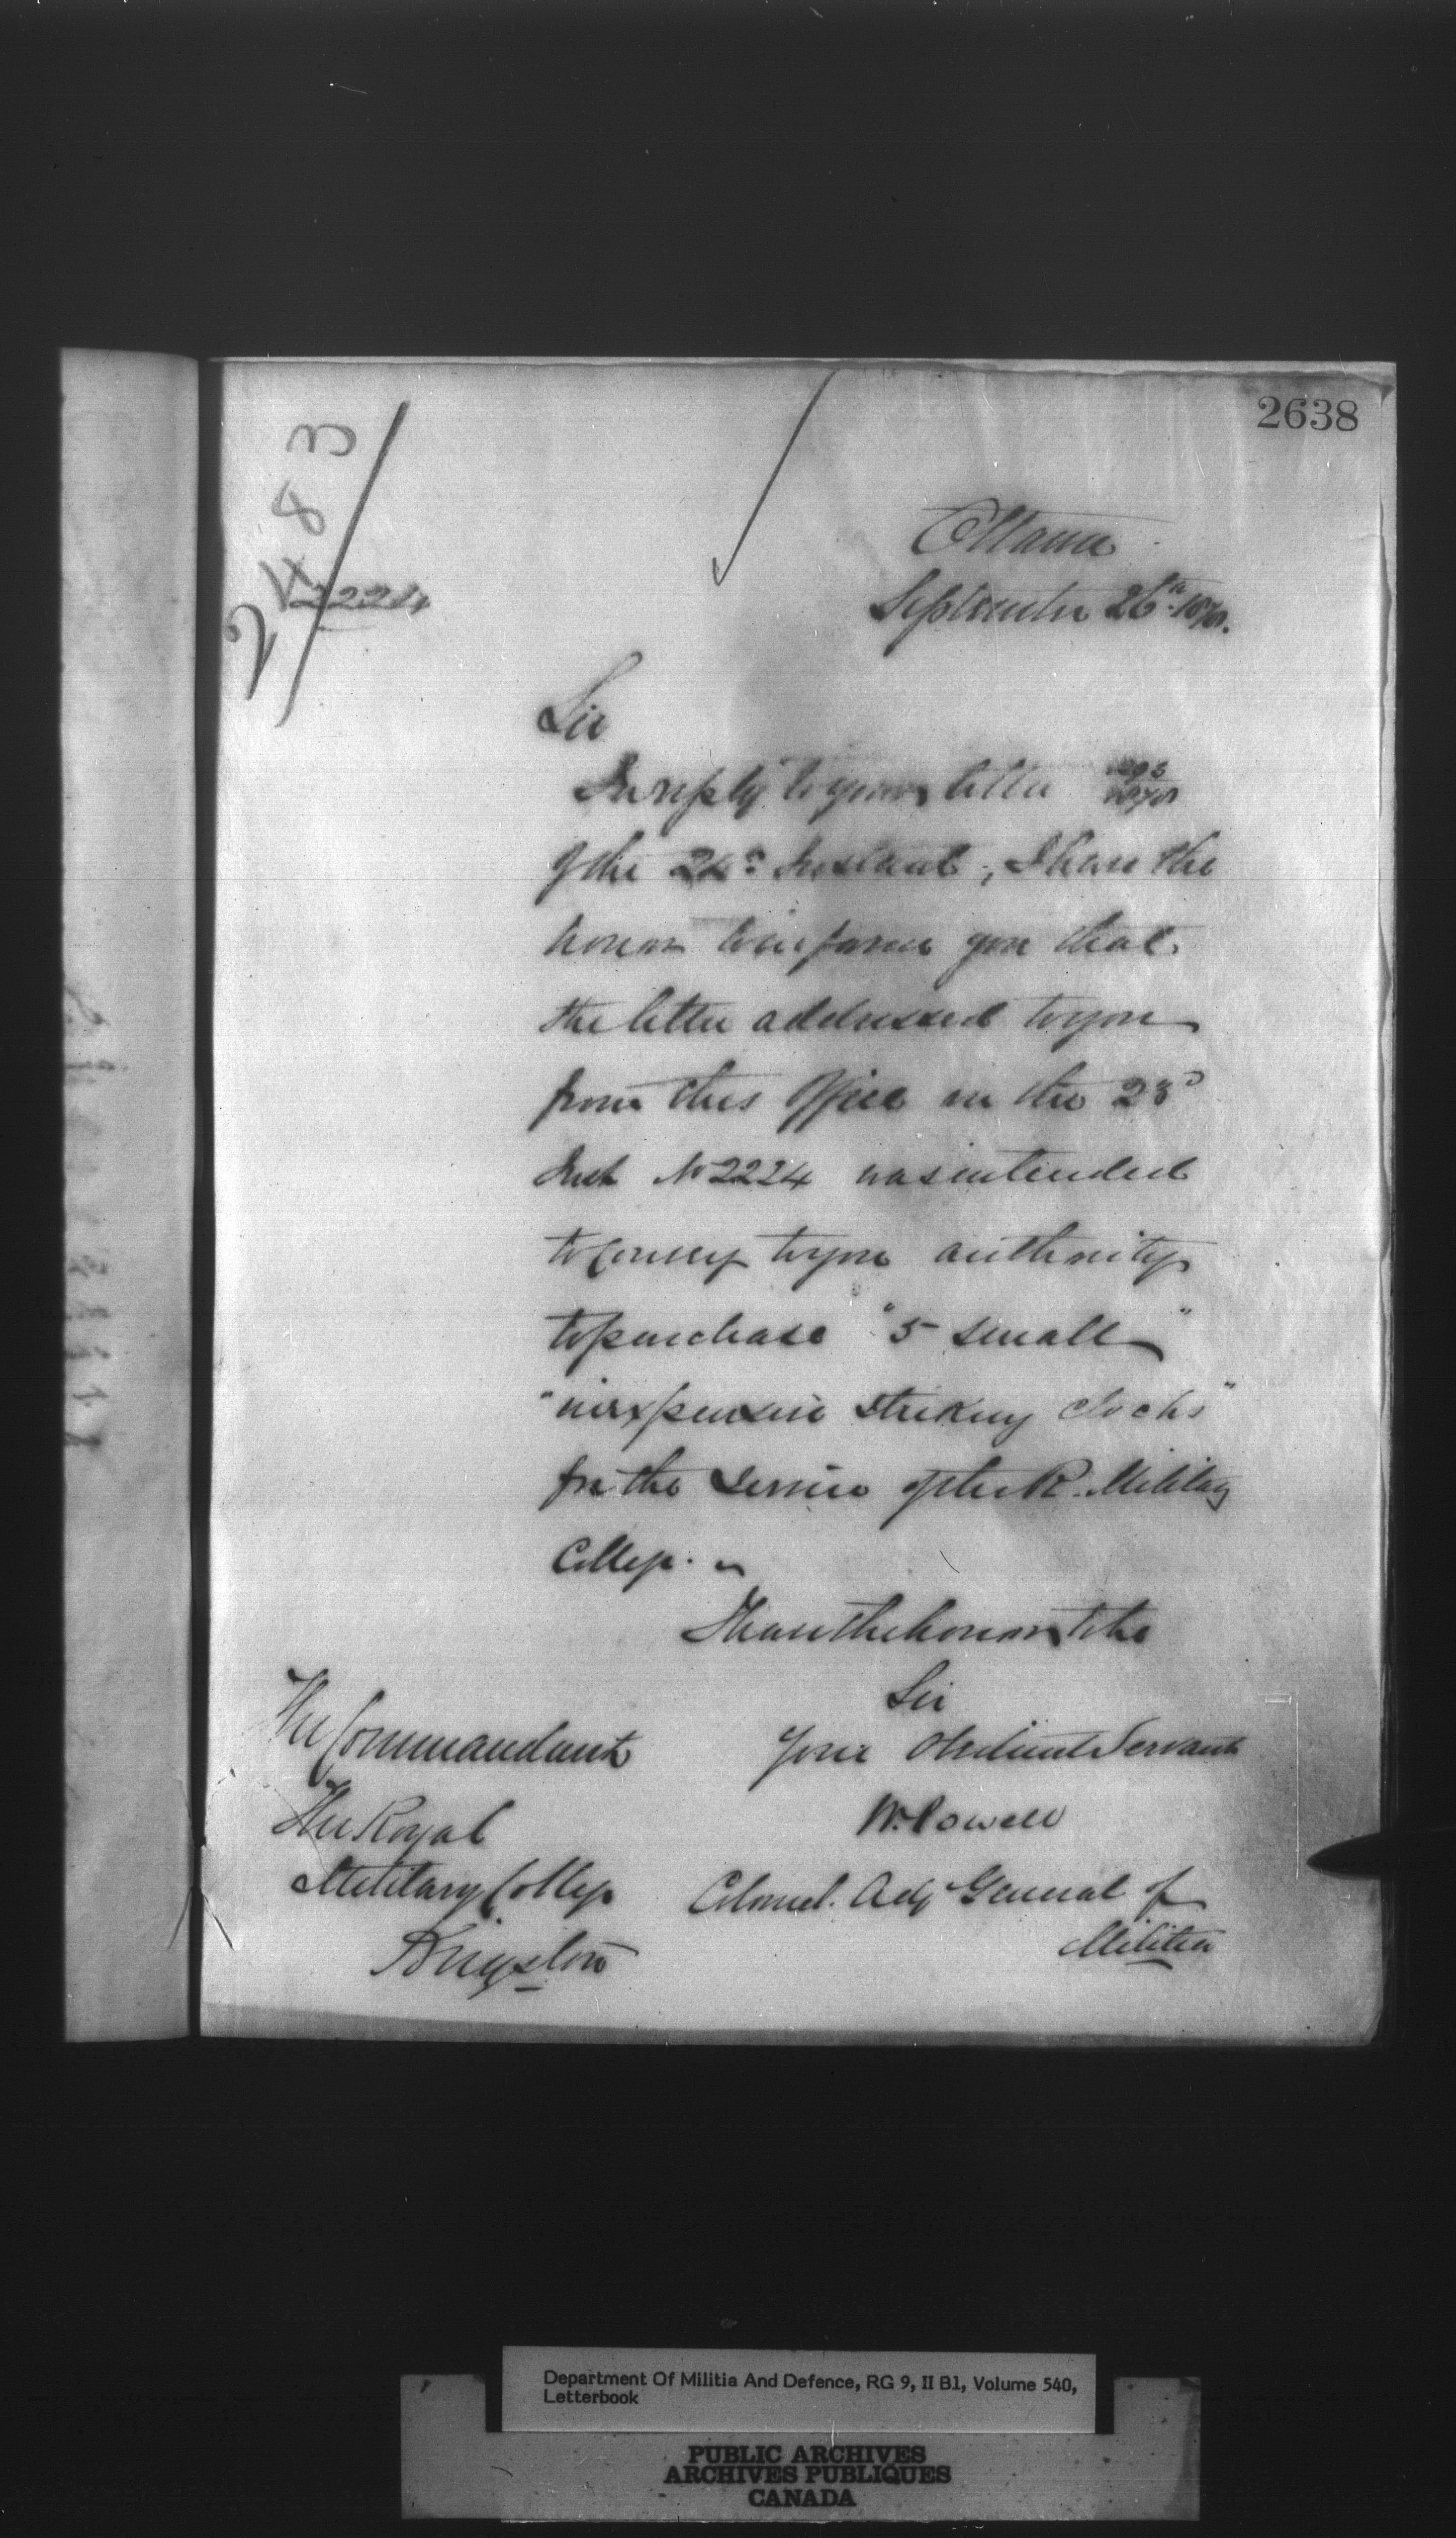 2638
2224
Ottawa
September 26th
Sir
In reply to your letter
of the 24th Instant, I have the
honor to inform you that
the letter addressed to you
from this Office on the 23d
Inst No 2224 was intended
to Convey to you authority
to purchase "5 small"
"inexpensive striking Clocks"
for the service of the R. Military
College.
I have the honor to be
Sir
Your Obedient Servant
W. Powell
Colonel. Adj General of
Militia
The Commandant
The Royal
Military College
Kingston
Department Of Militia And Defence, RG 9, II B1, Volume 540,
Letterbook
PUBLIC ARCHIVES
ARCHIVES PUBLIQUES
CANADA